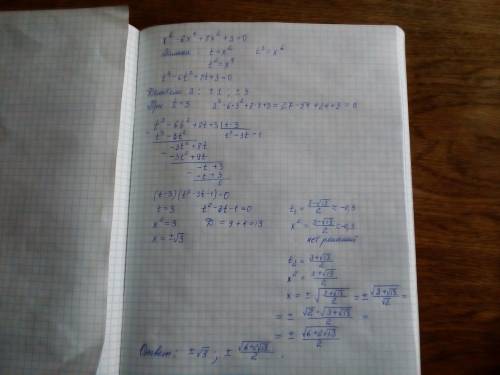 x⁶ - 6x⁴ + 8x² + 3 = 0
Замена: t = x² t³ = x⁶
t² = x⁴
t³ - 6t² + 8t + 3 = 0
Делители 3: ± 1, ± 3
При t = 3 3³ - 6·3² + 8·3 + 3 = 27 - 54 + 24 + 3 = 0
t³ - 6t² + 8t + 3 | t - 3
t³ - 3t² t² - 3t - 1
-3t² + 8t
-3t² + 9t
-t + 3
-t + 3
0
(t-3)(t² - 3t - 1) = 0
t = 3 t² - 3t - 1 = 0
x² = 3 D = 9 + 4 = 13
x = ±√3
t₁ = (3-√13)/2 = -0,3
x² = (3-√13)/2 = -0,3
нет решений
t₂ = (3+√13)/2
x² = (3+√13)/2
x = ± √((3+√13)/2) = ± √(3+√13)/√2 =
= ± √2·√(3+√13)/2 =
= ± √(6+2√13)/2
Ответ: ±√3 ; ± √(6+2√13)/2 .